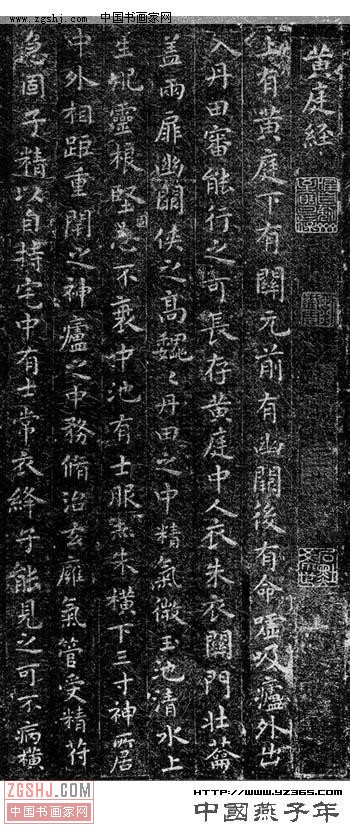 www.zgshj.com 中国书画家网
黄庭经
上有黄庭下有關元前有幽闕後有命嘘吸廬外出
入丹田審能行之可長存黄庭中人衣朱衣關門壯蘥
盖兩扉幽闕俠之高魏ミ丹田之中精氣微玉池清水上
生肥靈根堅固志不衰中池有士服赤朱橫下三寸神所居
中外相距重閇之神廬之中務脩治玄癰氣管受精符
急固子精以自持宅中有士常衣絳子能見之可不病橫
ZGSHJ.COM
中国书画家网
HTTP://WWW.YZ365.COM
中國燕子年